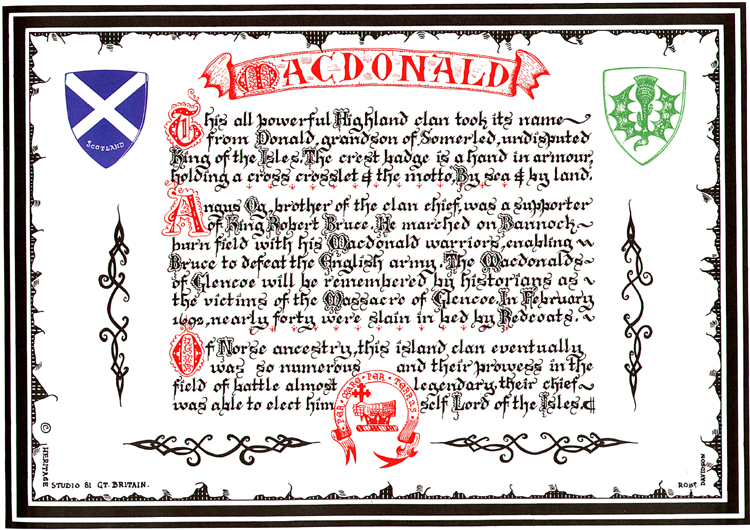 MACDONALD
SCOTLAND
This all powerful Highland clan took its name~
from Donald, grandson of Somerled, undisputed
King of the Isles. The crest badge is a hand in armour,
holding a cross crosslet & the motto, By sea & by land.
Angus Og, brother of the clan chief, was a supporter
of King Robert Bruce. He marched on Bannock~
burn field with his Macdonald warriors, enabling ~
Bruce to defeat the English army. The Macdonalds~
of Glencoe will be remembered by historians as~
the victims of the Massacre of Glencoe. In February
1692, nearly forty were slain in bed by Redcoats. ~
Of Norse ancestry, this island clan eventually
was so numerous and their prowess in the
field of battle almost legendary, their chief~
was able to elect himself Lord of the Isles.
PER · MARE · PER · TERRAS
© HERITAGE
STUDIO 81 GT. BRITAIN.
ROBT DAVIDSON